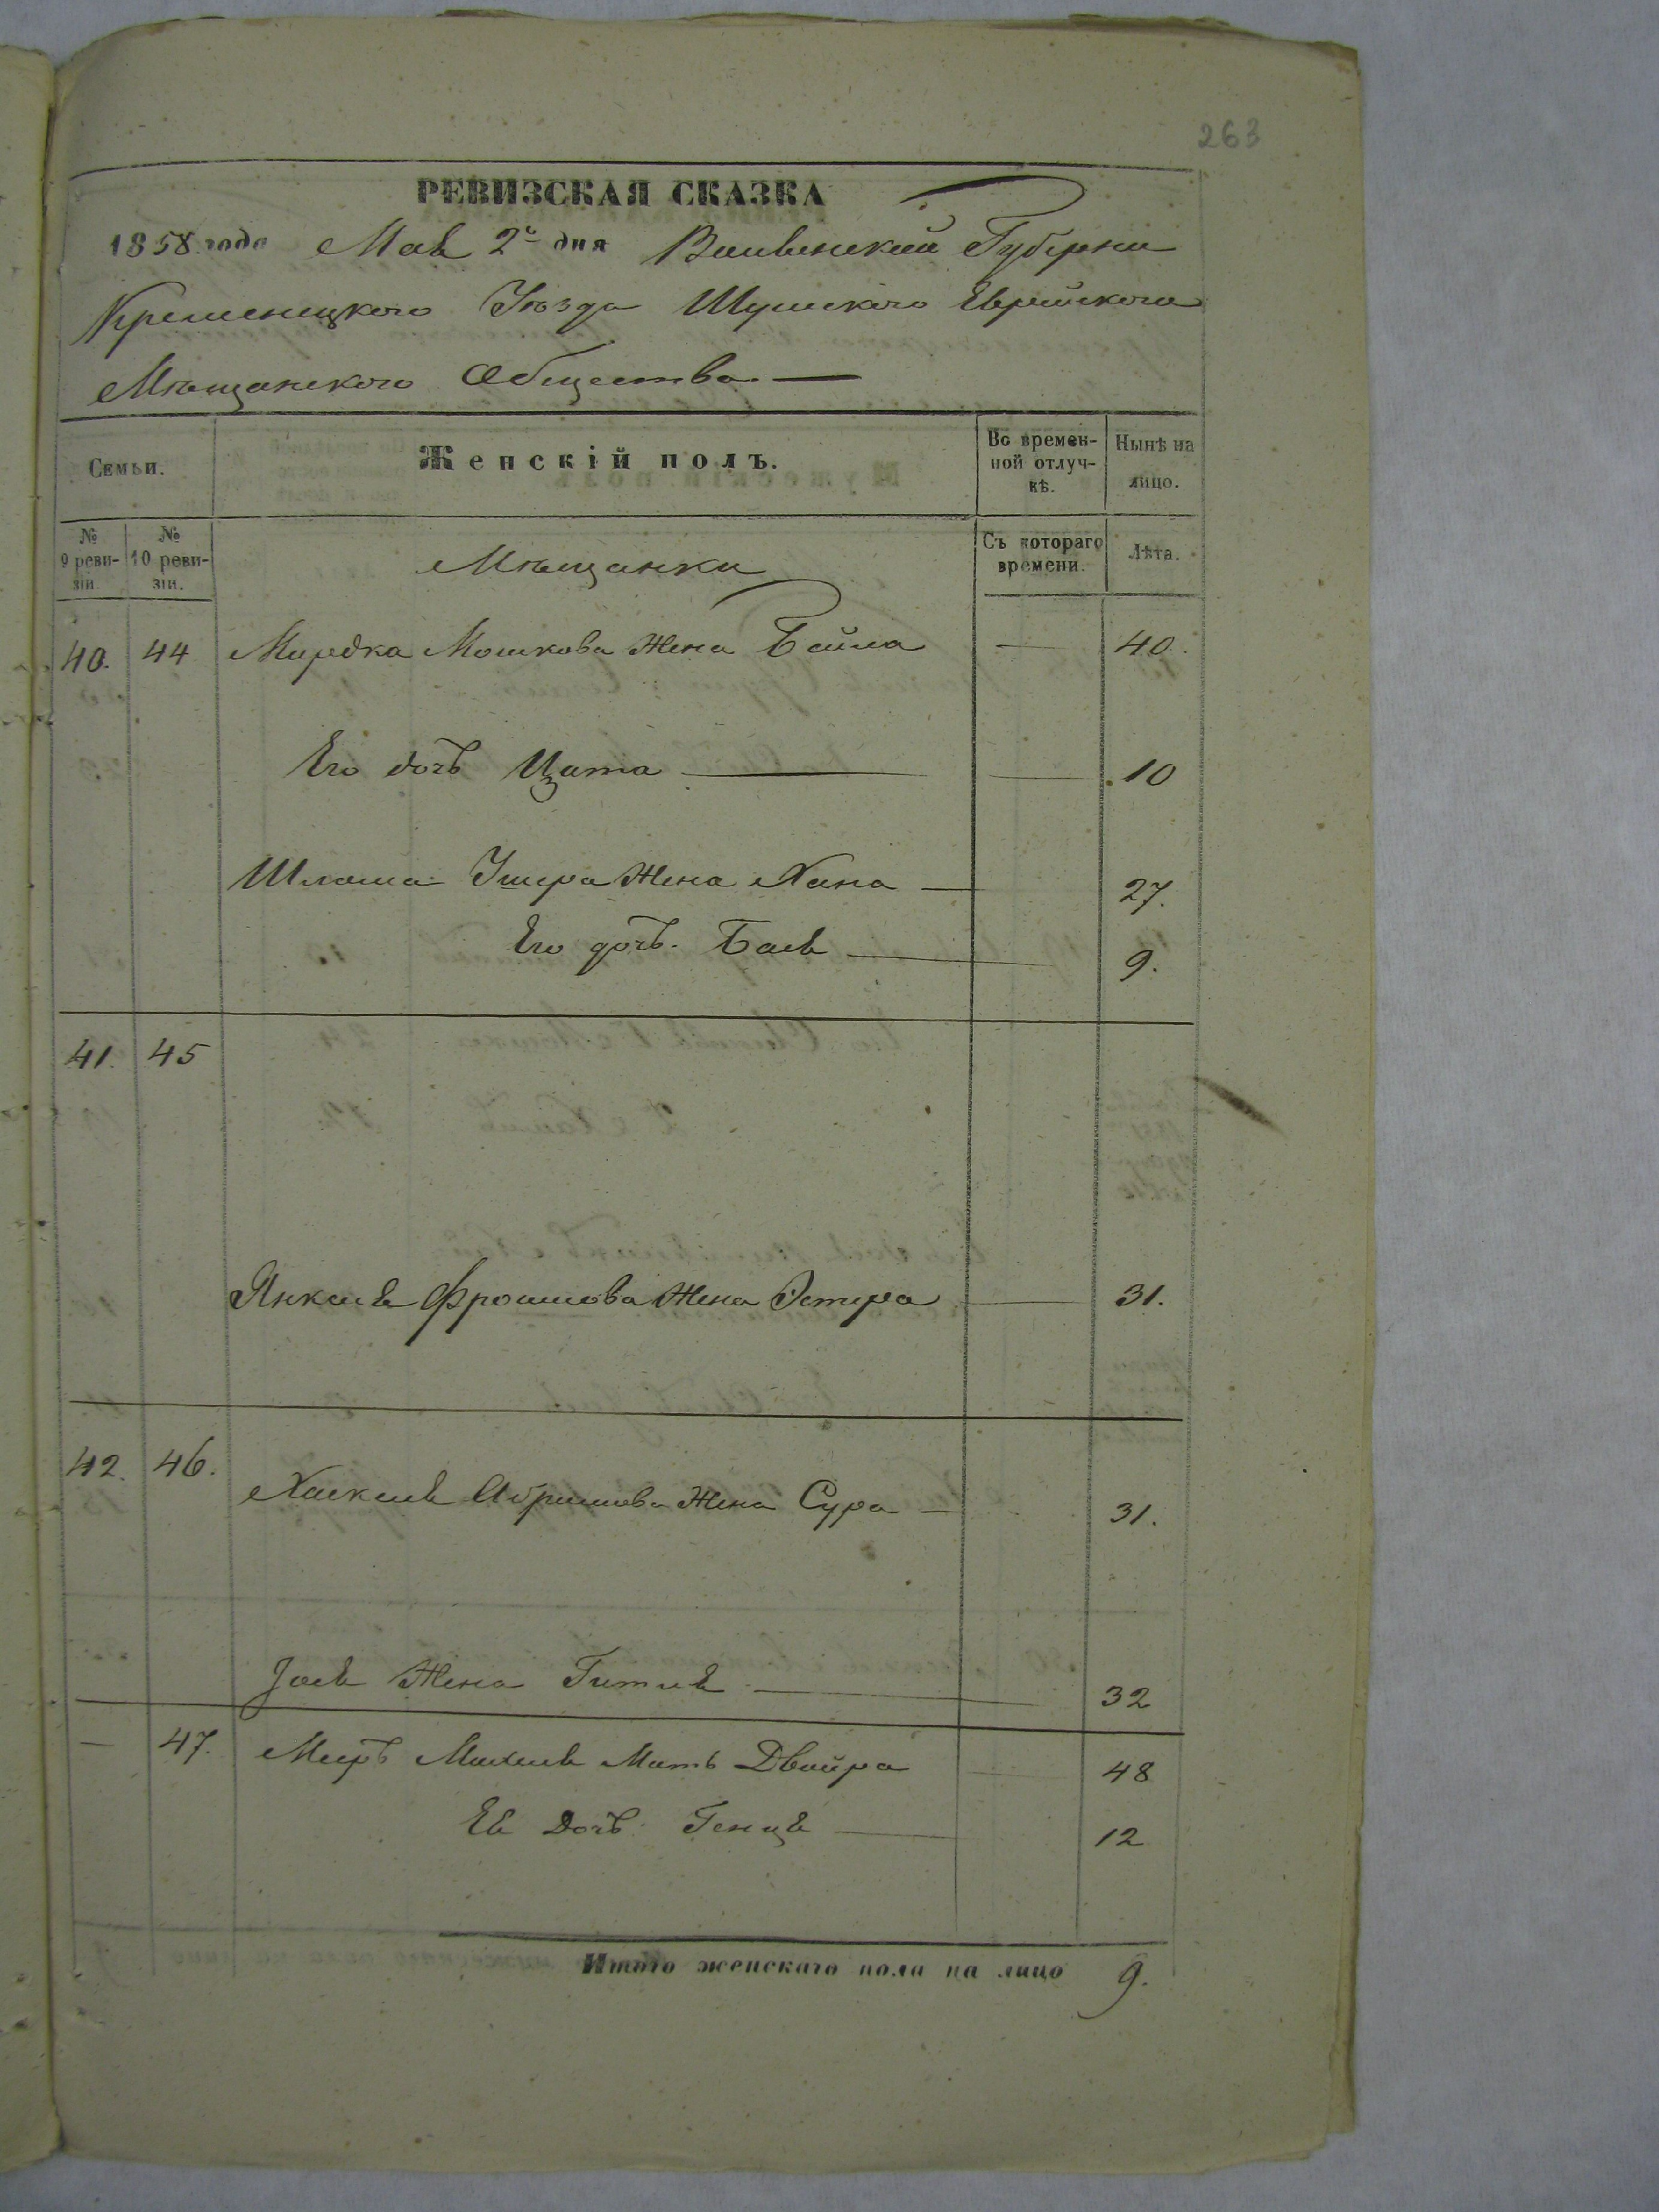 263
РЕВИЗСКАЯ СКАЗКА
1858 года Мая 2го дня Волынской Губерни
Кременецкого Уѣзда Шумского Еврейского
Мѣщанского Общества
Семьи.
Женскій полъ.
Во времен-
ной отлуч-
кѣ.
Нынѣ на
лицо.
№
9 реви-
зіи.
№
10 реви-
зіи.
Мѣщанки
Съ котораго
времени.
Лѣта.
40. 44 Мошкова Жена Бейла — 40.
Его дочъ Цата — 10
Шлома Жена Хана — 27.
Его дочъ. Бася — 9.
41. 45
Янкеля Фроимова Жена Эстера — 31.
42. 46.
Хаскеля Абрамова Жена Сура — 31.
Жена Гитля — 32
— 47. Меръ Мать Двойра — 48
Ея Дочъ Генця — 12
Итого женскаго пола на лицо 9.